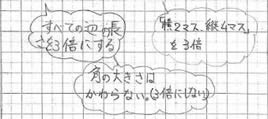 すべての辺の長
さを3倍にする
「横2マス、縦4マス」
を3倍
角の大きさは
かわらない。(3倍にしない)